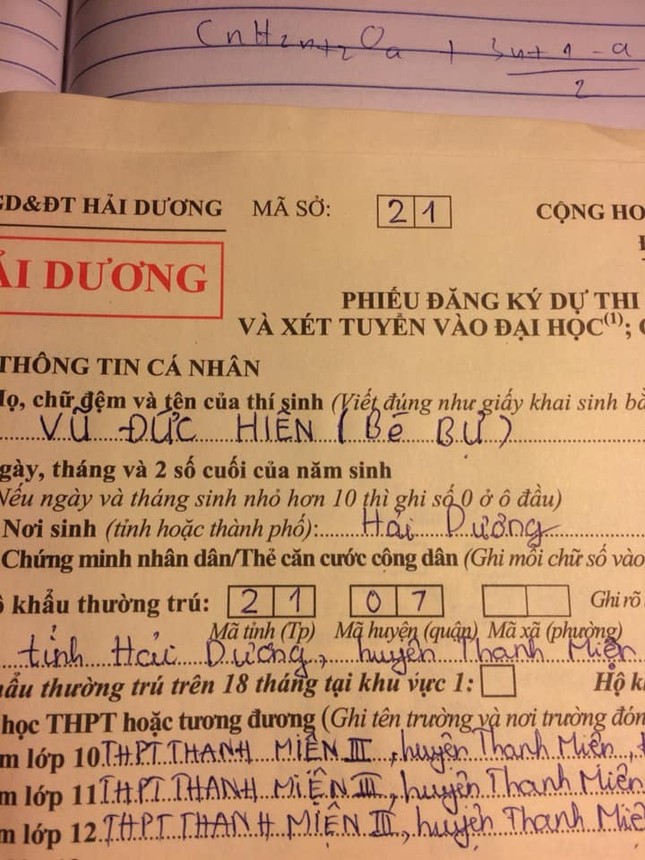 CnH2n+2Oa + 3n+1-a
2
GD&ĐT HẢI DƯƠNG MÃ SỞ: 21 CỘNG HO
ẢI DƯƠNG
PHIẾU ĐĂNG KÝ DỰ THI
VÀ XÉT TUYỂN VÀO ĐẠI HỌC(1);
THÔNG TIN CÁ NHÂN
Họ, chữ đệm và tên của thí sinh (Viết đúng như giấy khai sinh bằ
VŨ ĐỨC HIỀN (Bé Bự)
gày, tháng và 2 số cuối của năm sinh
Nếu ngày và tháng sinh nhỏ hơn 10 thì ghi số 0 ở ô đầu)
Nơi sinh (tỉnh hoặc thành phố): Hải Dương
Chứng minh nhân dân/Thẻ căn cước công dân (Ghi mỗi chữ số vào
ộ khẩu thường trú: 21 07 Ghi rõ
Mã tỉnh (Tp) Mã huyện (quận) Mã xã (phường)
tỉnh Hải Dương, huyện Thanh Miện
ẩu thường trú trên 18 tháng tại khu vực 1: Hộ k
học THPT hoặc tương đương (Ghi tên trường và nơi trường đón
m lớp 10 THPT THANH MIỆN III, huyện Thanh Miện,
m lớp 11 THPT THANH MIỆN III, huyện Thanh Miện
m lớp 12 THPT THANH MIỆN III, huyện Thanh Miệ